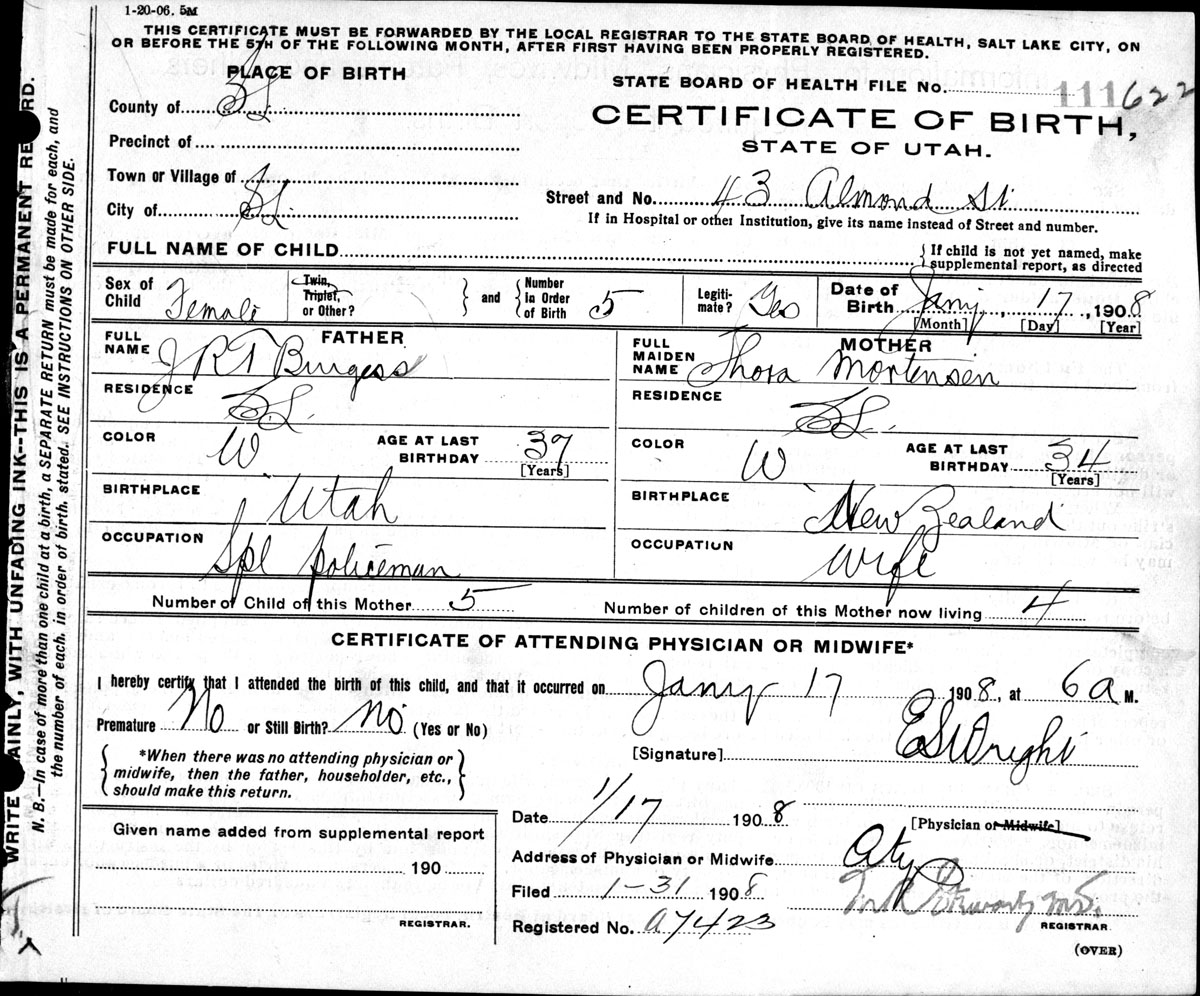 1-20-06. 5M
THIS CERTIFICATE MUST BE FORWARDED BY THE LOCAL REGISTRAR TO THE STATE BOARD OF HEALTH, SALT LAKE CITY, ON
OR BEFORE THE 5TH OF THE FOLLOWING MONTH, AFTER FIRST HAVING BEEN PROPERLY REGISTERED.
PLACE OF BIRTH
STATE BOARD OF HEALTH FILE No. 111622
County of SL.
CERTIFICATE OF BIRTH,
Precinct of
STATE OF UTAH.
Town or Village of SL
Street and No. 43 Almond St
City of SL.
If in Hospital or other Institution, give its name instead of Street and number.
FULL NAME OF CHILD
{ If child is not yet named, make
supplemental report, as directed
Sex of Child Female
Twin, Triplet, or Other?
} and { Number in Order of Birth 5
Legitimate? Yes
Date of Birth Jany 17, 1908
[Month] [Day] [Year]
FATHER
FULL NAME J R T Burgess
MOTHER
FULL MAIDEN NAME Thora Mortensen
RESIDENCE SL.
RESIDENCE SL.
COLOR W AGE AT LAST BIRTHDAY 37 [Years]
COLOR W AGE AT LAST BIRTHDAY 34 [Years]
BIRTHPLACE Utah
BIRTHPLACE New Zealand
OCCUPATION Spl policeman
OCCUPATION Wife
Number of Child of this Mother 5 Number of children of this Mother now living 4
CERTIFICATE OF ATTENDING PHYSICIAN OR MIDWIFE*
I hereby certify that I attended the birth of this child, and that it occurred on Jany 17 1908, at 6 a M.
Premature No or Still Birth? No (Yes or No)
[Signature] E S Wright
{ *When there was no attending physician or
midwife, then the father, householder, etc.,
should make this return. }
Date 1/17 1908
[Physician or Midwife]
Given name added from supplemental report
Address of Physician or Midwife City
190
Filed 1-31 1908
REGISTRAR.
Registered No. a7423
REGISTRAR
(OVER)
WRITE PLAINLY, WITH UNFADING INK--THIS IS A PERMANENT RECORD.
N. B.—In case of more than one child at a birth, a SEPARATE RETURN must be made for each, and
the number of each, in order of birth, stated. SEE INSTRUCTIONS ON OTHER SIDE.